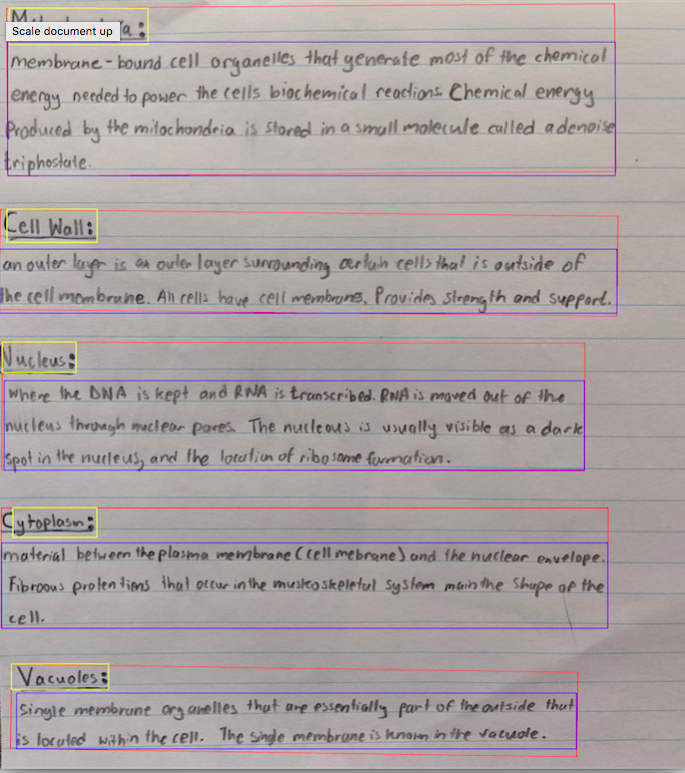 Scale document up
membrane-bound cell organelles that generate most of the chemical
energy needed to power the cells biochemical reactions. Chemical energy
Produced by the mitochondria is stored in a small molecule called adenoise
triphostate.
Cell Wall:
an outer layer is an outer layer surrounding certain cells that is outside of
the cell membrane. All cells have cell membranes. Provides strength and support.
Nucleus:
where the DNA is kept and RNA is transcribed. RNA is moved out of the
nucleus through nuclear pores. The nucleous is usually visible as a dark
spot in the nucleus, and the location of ribosome formation.
Cytoplasm:
material between the plasma membrane (cell mebrane) and the nuclear envelope.
Fibroous protentions that occur in the muskoskeletal system main the shape of the
cell.
Vacuoles:
Single membrane organelles that are essentially part of the outside that
is located within the cell. The single membrane is known in the vacuole.